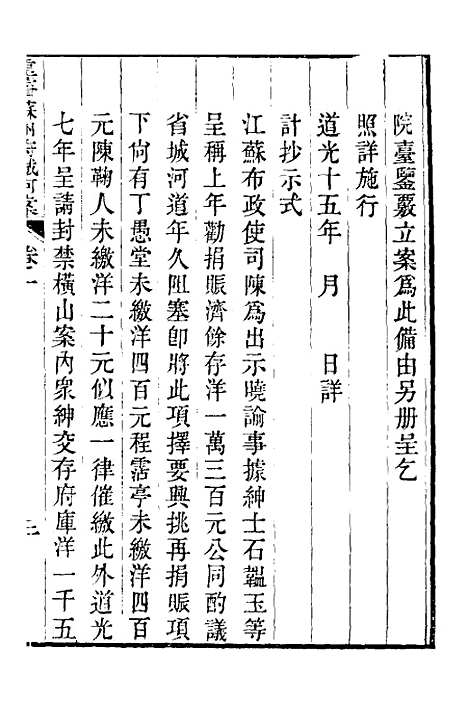 院臺鑒覈立案爲此備由另册呈乞
照詳施行
道光十五年　月　　日詳
計抄示式
江蘇布政使司陳爲出示曉諭事據紳士石韞玉等
呈稱上年勸捐賑濟餘存洋一萬三百元公同酌議
省城河道年久阻塞卽將此項擇要興挑再捐賑項
下尙有丁愚堂未繳洋四百元程霱亭未繳洋四百
元陳鞠人未繳洋二十元似應一律催繳此外道光
七年呈請封禁橫山案內衆紳交存府庫洋一千五
重濬蘇州府城河案　卷一